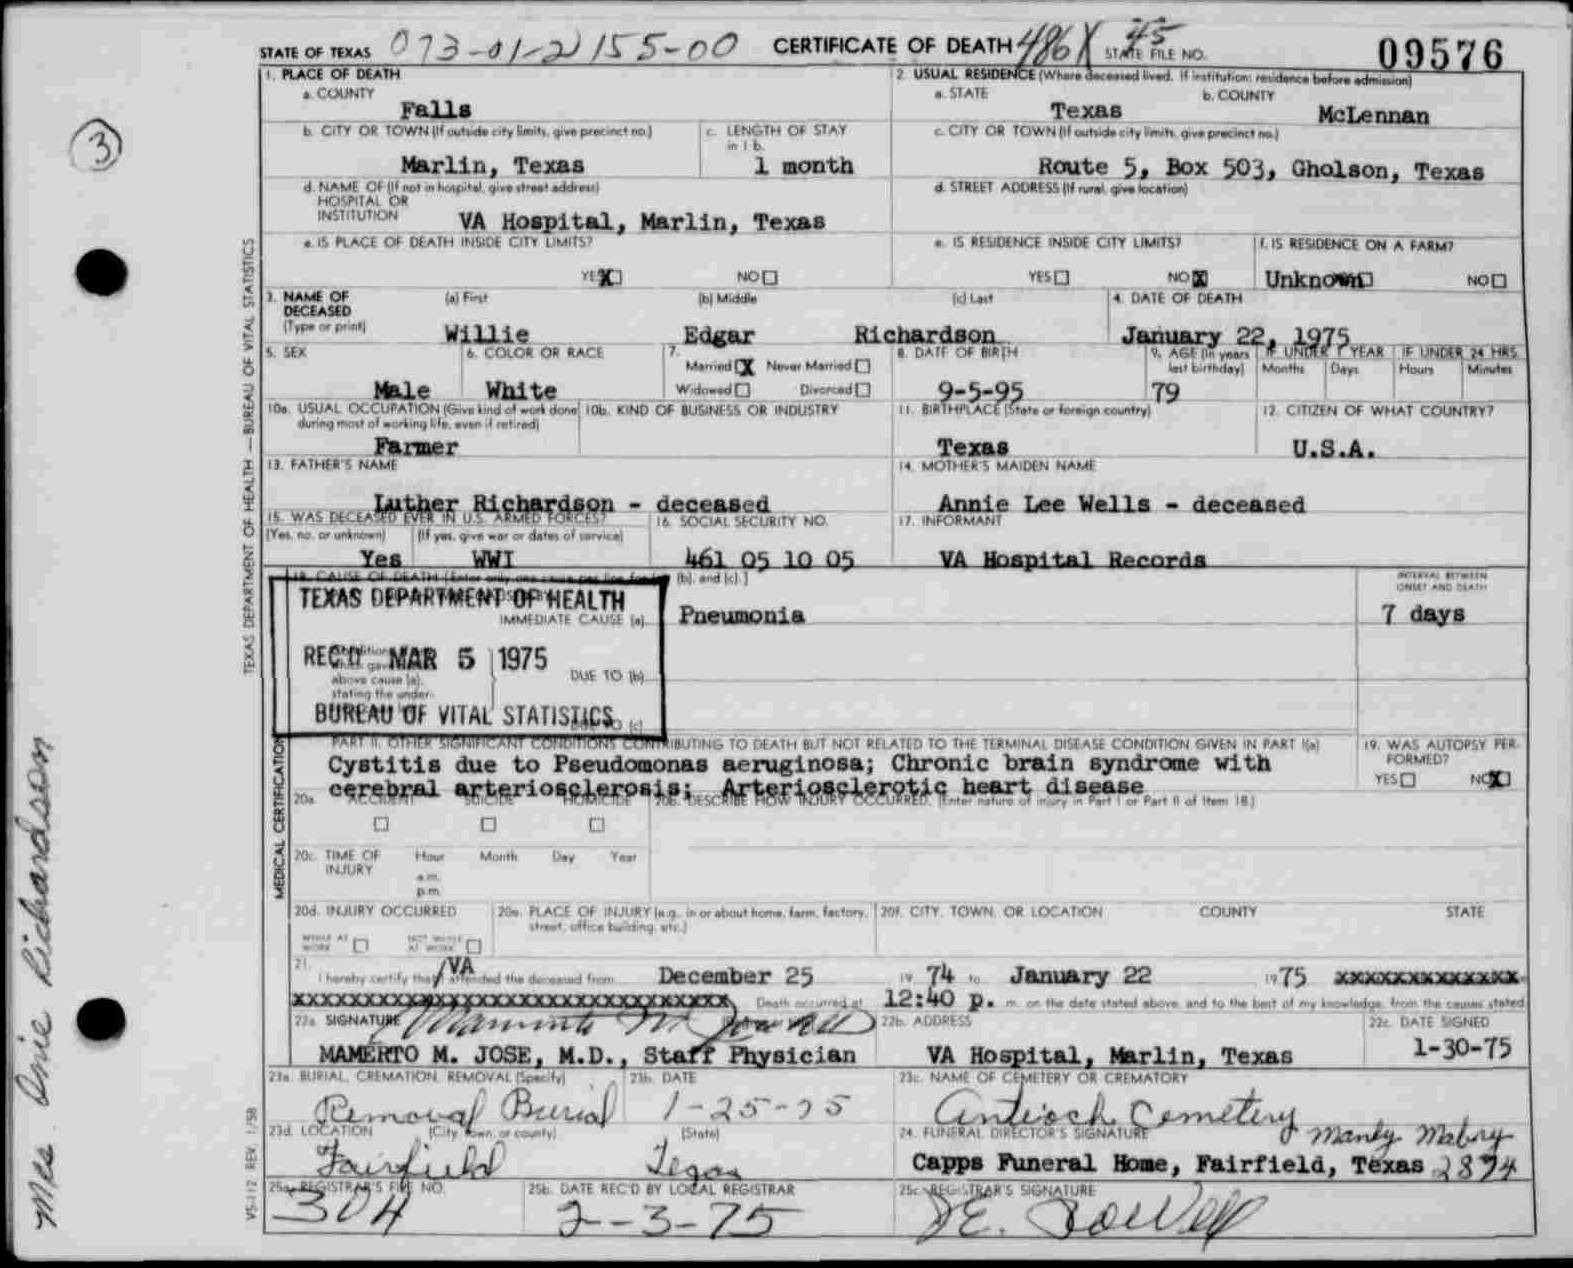 STATE OF TEXAS 073-01-2155-00 CERTIFICATE OF DEATH 486X 45 STATE FILE NO. 09576
1. PLACE OF DEATH
a. COUNTY
Falls
2. USUAL RESIDENCE (Where deceased lived. If institution: residence before admission)
a. STATE
Texas
b. COUNTY
McLennan
b. CITY OR TOWN (If outside city limits, give precinct no.)
Marlin, Texas
c. LENGTH OF STAY
in 1 b.
1 month
c. CITY OR TOWN (If outside city limits, give precinct no.)
Route 5, Box 503, Gholson, Texas
d. NAME OF (If not in hospital, give street address)
HOSPITAL OR
INSTITUTION VA Hospital, Marlin, Texas
d. STREET ADDRESS (If rural, give location)
e. IS PLACE OF DEATH INSIDE CITY LIMITS?
YES X NO
e. IS RESIDENCE INSIDE CITY LIMITS?
YES NO X
f. IS RESIDENCE ON A FARM?
Unknown NO
3. NAME OF
DECEASED
(Type or print)
(a) First
Willie
(b) Middle
Edgar
(c) Last
Richardson
4. DATE OF DEATH
January 22, 1975
5. SEX
Male
6. COLOR OR RACE
White
7.
Married X Never Married
Widowed Divorced
8. DATE OF BIRTH
9-5-95
9. AGE (In years
last birthday)
79
IF UNDER 1 YEAR
Months Days
IF UNDER 24 HRS.
Hours Minutes
10a. USUAL OCCUPATION (Give kind of work done
during most of working life, even if retired)
Farmer
10b. KIND OF BUSINESS OR INDUSTRY
11. BIRTHPLACE (State or foreign country)
Texas
12. CITIZEN OF WHAT COUNTRY?
U.S.A.
13. FATHER'S NAME
Luther Richardson - deceased
14. MOTHER'S MAIDEN NAME
Annie Lee Wells - deceased
15. WAS DECEASED EVER IN U.S. ARMED FORCES?
(Yes, no, or unknown) (If yes, give war or dates of service)
Yes WWI
16. SOCIAL SECURITY NO.
461 05 10 05
17. INFORMANT
VA Hospital Records
18. CAUSE OF DEATH (Enter only one cause per line for (b), and (c).)
INTERVAL BETWEEN
ONSET AND DEATH
TEXAS DEPARTMENT OF HEALTH
IMMEDIATE CAUSE (a) Pneumonia 7 days
REC'D MAR 5 1975
above cause (a),
stating the under-
DUE TO (b)
BUREAU OF VITAL STATISTICS
(c)
PART II. OTHER SIGNIFICANT CONDITIONS CONTRIBUTING TO DEATH BUT NOT RELATED TO THE TERMINAL DISEASE CONDITION GIVEN IN PART I(a)
Cystitis due to Pseudomonas aeruginosa; Chronic brain syndrome with
cerebral arteriosclerosis; Arteriosclerotic heart disease
19. WAS AUTOPSY PER-
FORMED?
YES NO X
20a. ACCIDENT SUICIDE HOMICIDE
20b. DESCRIBE HOW INJURY OCCURRED. (Enter nature of injury in Part I or Part II of Item 18.)
20c. TIME OF
INJURY
Hour Month Day Year
a.m.
p.m.
20d. INJURY OCCURRED
WHILE AT
WORK
NOT WHILE
AT WORK
20e. PLACE OF INJURY (e.g., in or about home, farm, factory,
street, office building, etc.)
20f. CITY, TOWN, OR LOCATION COUNTY STATE
21.
I hereby certify that VA attended the deceased from December 25 19 74 to January 22 1975 xxxxxxxxxxxxxx
Death occurred at 12:40 p. m. on the date stated above, and to the best of my knowledge, from the causes stated.
22a. SIGNATURE
MAMERTO M. JOSE, M.D., Staff Physician
22b. ADDRESS
VA Hospital, Marlin, Texas
22c. DATE SIGNED
1-30-75
23a. BURIAL, CREMATION, REMOVAL (Specify)
Removal Burial
23b. DATE
1-25-75
23c. NAME OF CEMETERY OR CREMATORY
Antioch Cemetery
23d. LOCATION (City, town, or county) (State)
Fairfield Texas
24. FUNERAL DIRECTOR'S SIGNATURE
Manly Mabry
Capps Funeral Home, Fairfield, Texas 2874
25a. REGISTRAR'S FILE NO.
304
25b. DATE REC'D BY LOCAL REGISTRAR
2-3-75
25c. REGISTRAR'S SIGNATURE
3
TEXAS DEPARTMENT OF HEALTH — BUREAU OF VITAL STATISTICS
MEDICAL CERTIFICATION
VS-112 REV. 1/58
Mrs. Onie Richardson